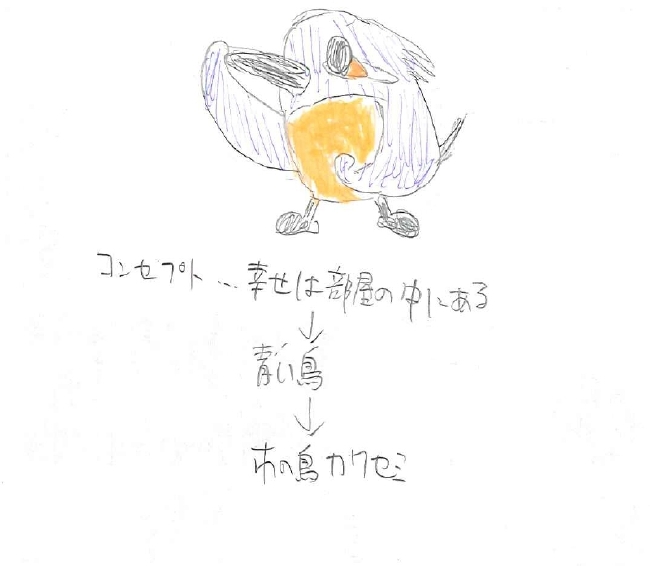 コンセプト…幸せは部屋の中にある
↓
青い鳥
↓
市の鳥カワセミ